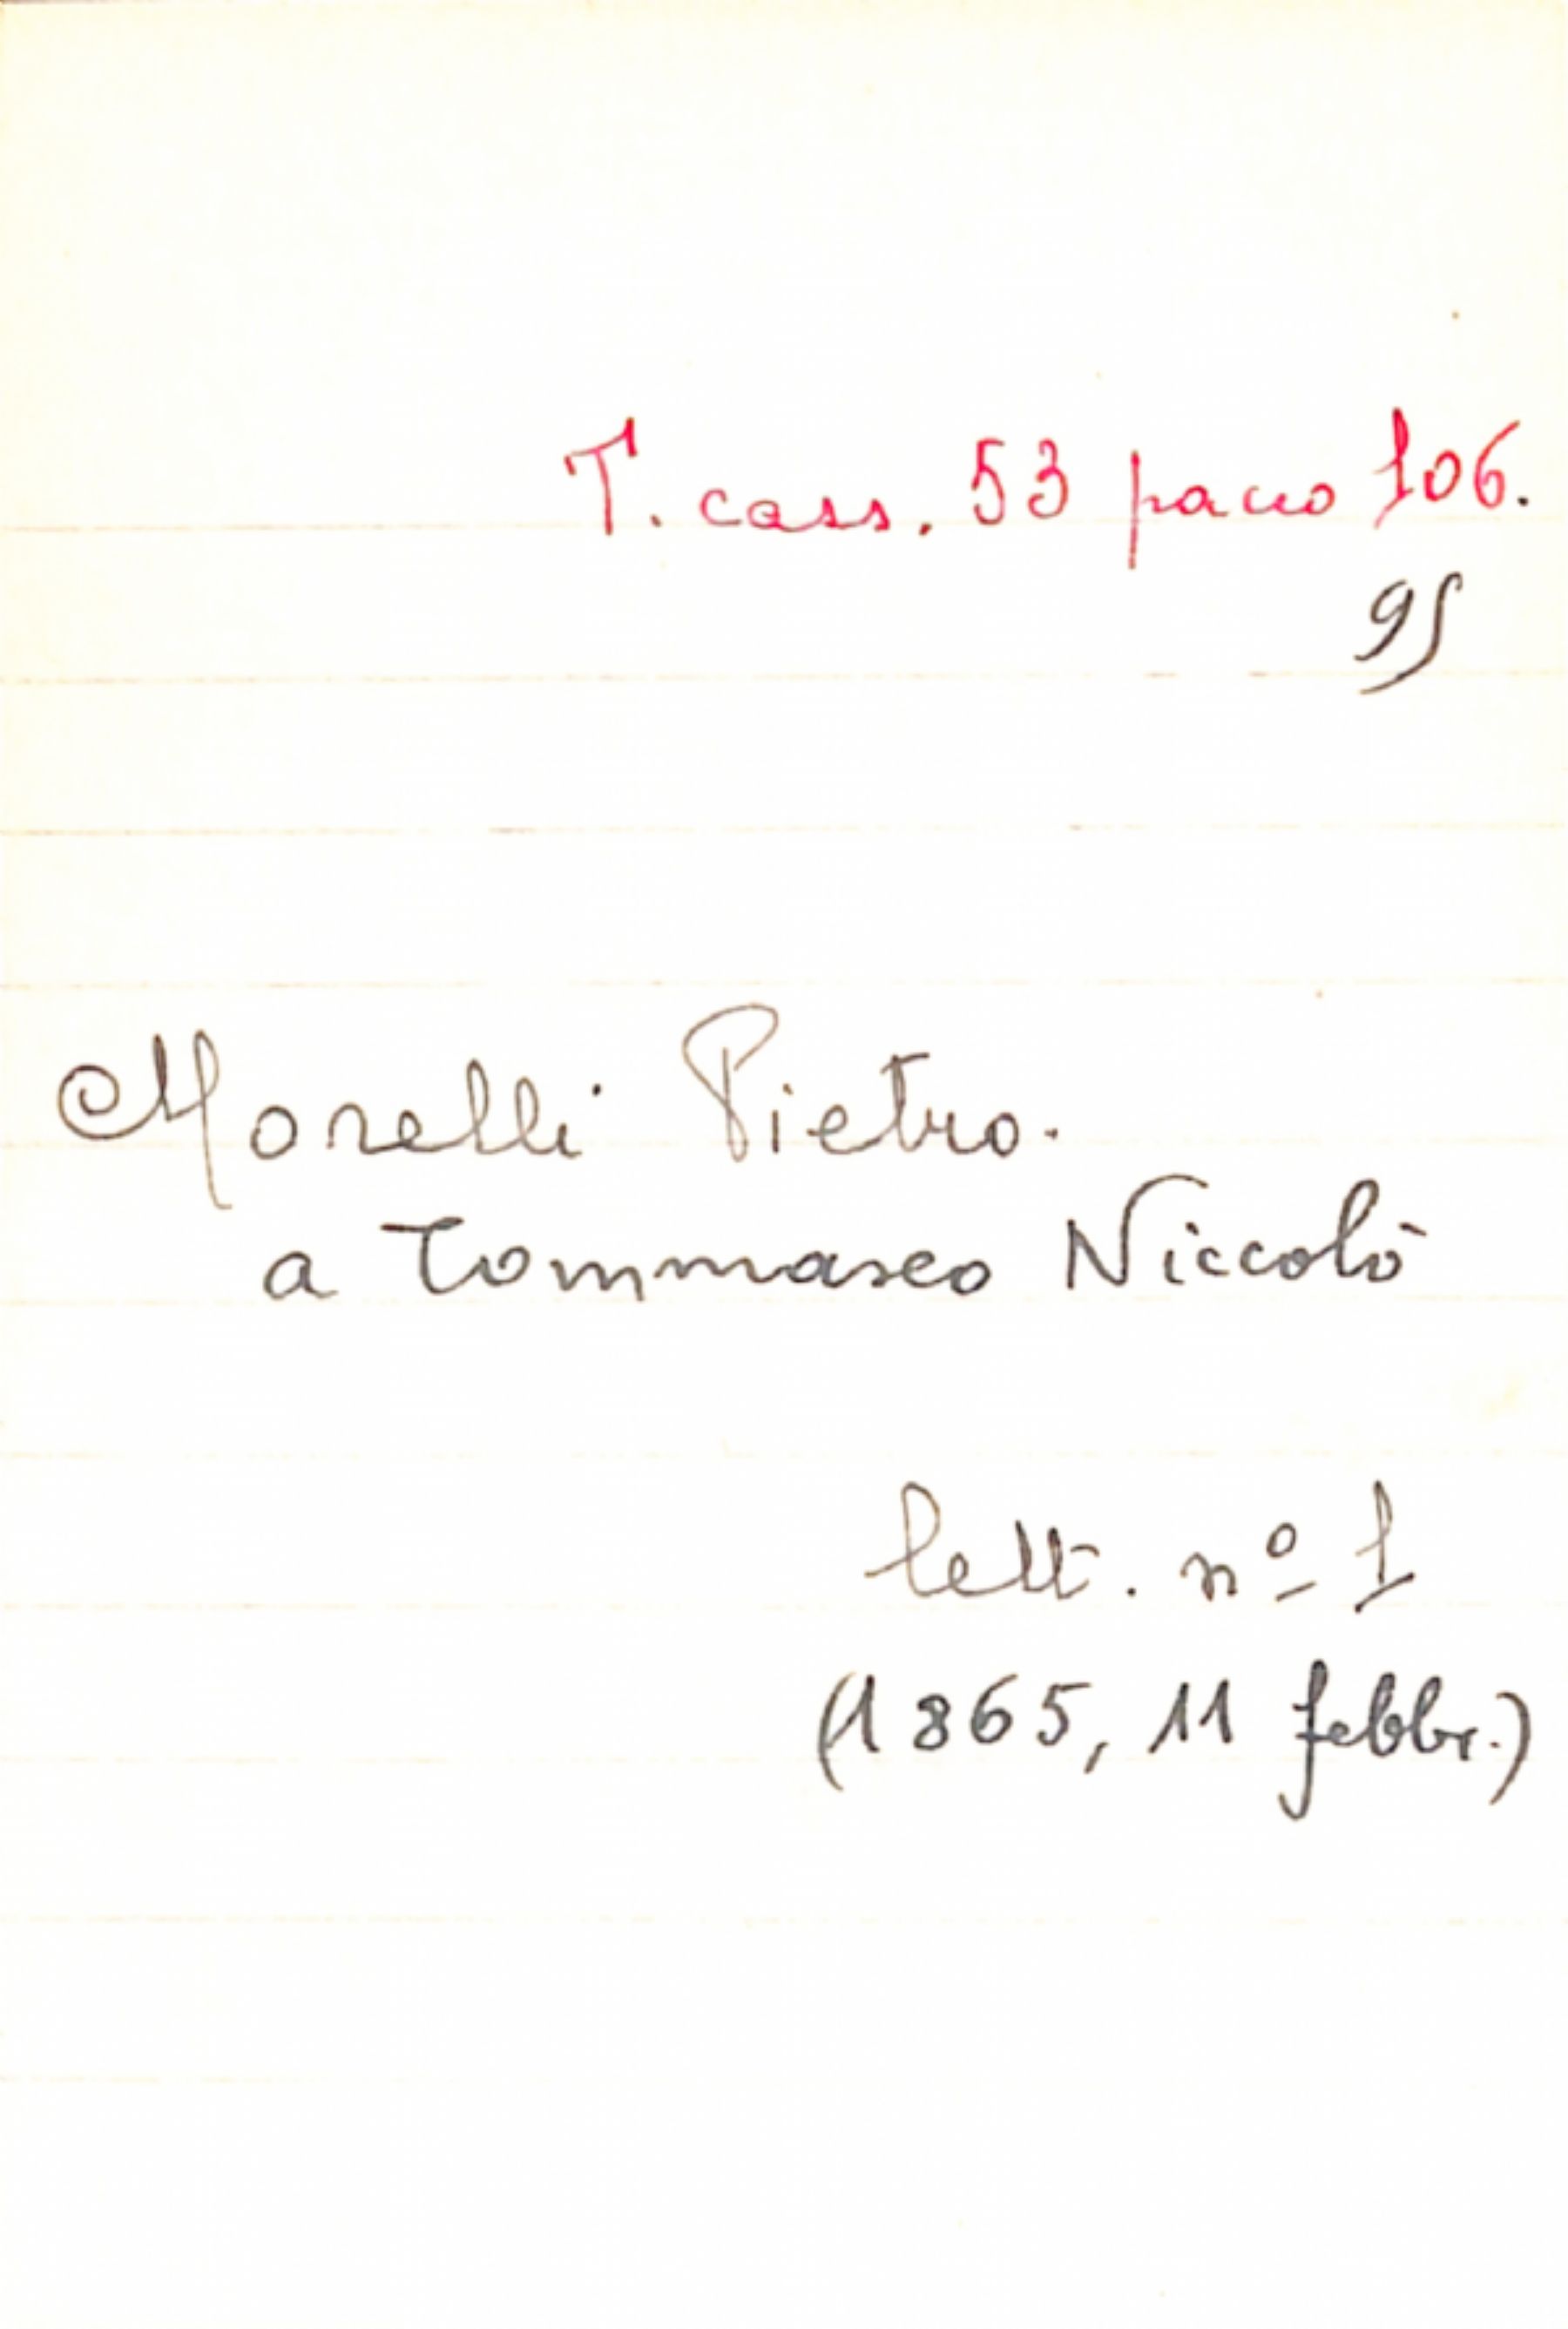 T. cass. 53 pacco 106.
95
Morelli Pietro.
a Tommaseo Niccolò
lett. nº 1
(1865, 11 febbr.)